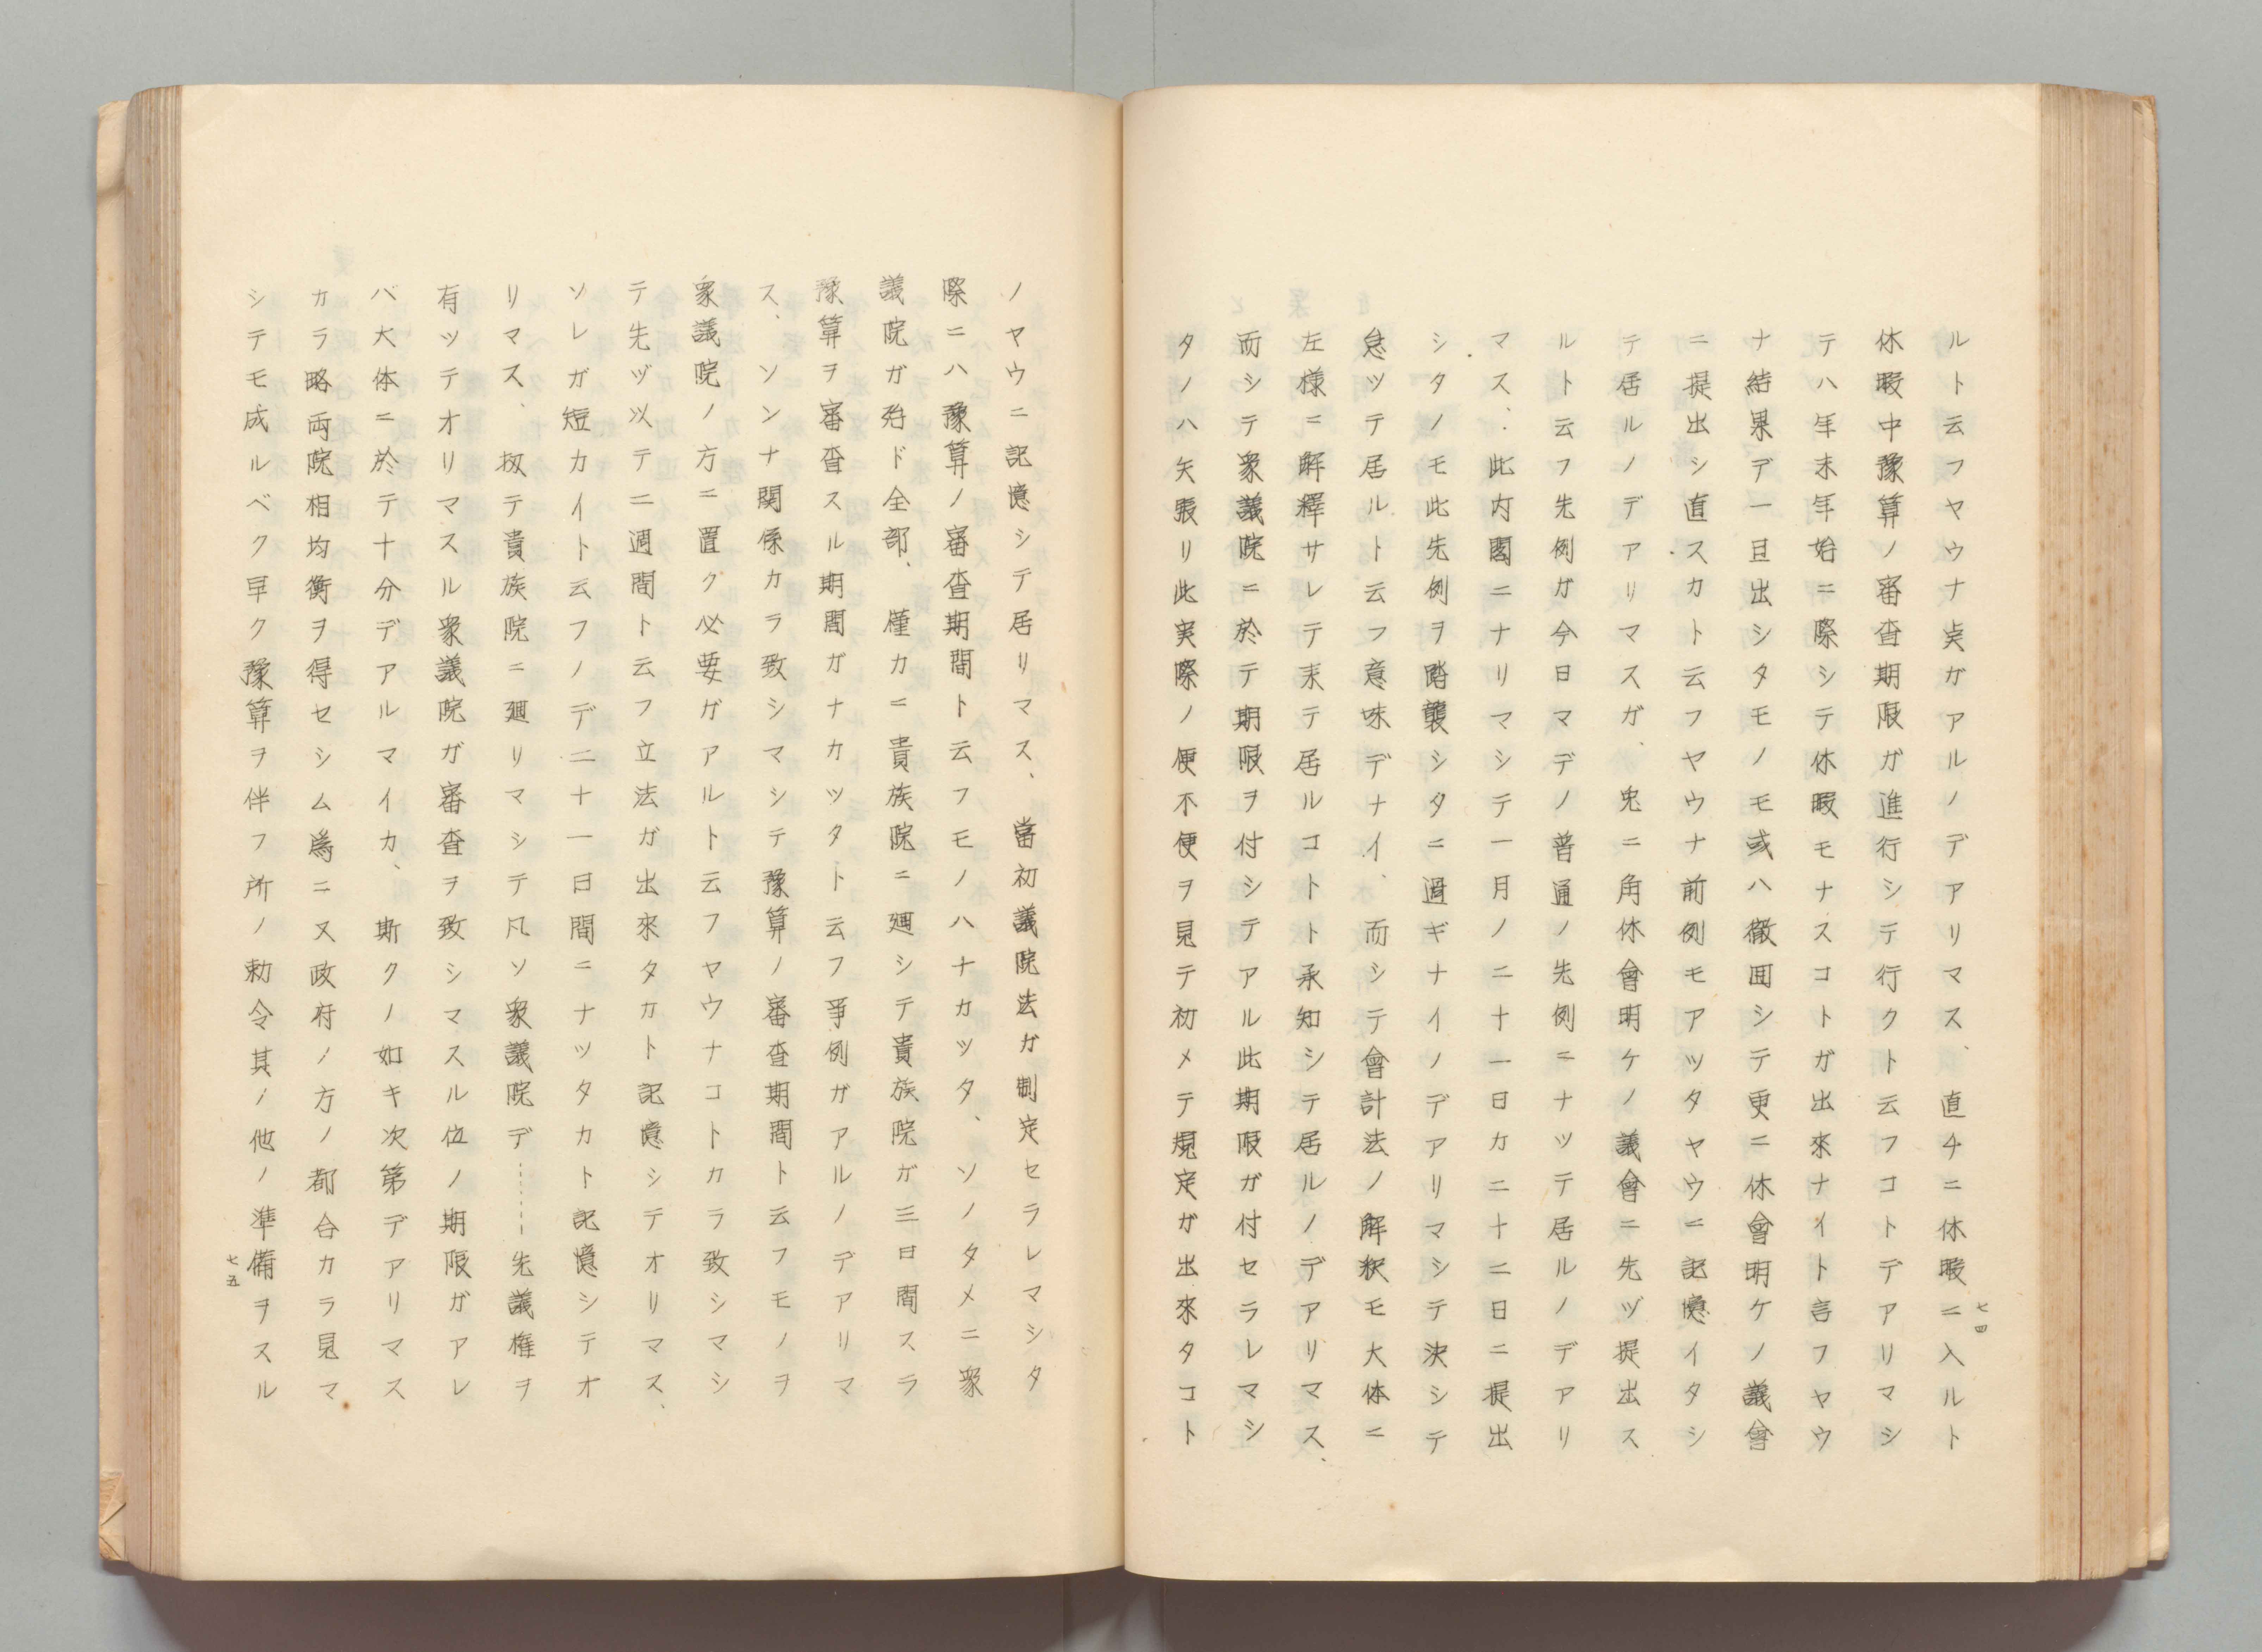 ルト云フヤウナ点ガアルノデアリマス、直チニ休暇ニ入ルト
休暇中豫算ノ審査期限ガ進行シテ行クト云フコトデアリマシ
テハ年末年始ニ際シテ休暇モナスコトガ出來ナイト言フヤウ
ナ結果デ一旦出シタモノモ或ハ撤回シテ更ニ休會明ケノ議會
ニ提出シ直スカト云フヤウナ前例モアツタヤウニ記憶イタシ
テ居ルノデアリマスガ、兎ニ角休會明ケノ議會ニ先ヅ提出ス
ルト云フ先例ガ今日マデノ普通ノ先例ニナツテ居ルノデアリ
マス、此内閣ニナリマシテ一月ノ二十一日カ二十二日ニ提出
シタノモ此先例ヲ踏襲シタニ過ギナイノデアリマシテ決シテ
怠ツテ居ルト云フ意味デナイ、而シテ會計法ノ解釈モ大体ニ
左様ニ解釋サレテ末テ居ルコトト承知シテ居ルノデアリマス、
而シテ衆議院ニ於テ期限ヲ付シテアル此期限ガ付セラレマシ
タノハ矢張リ此実際ノ便不便ヲ見テ初メテ規定ガ出來タコト
七四
ノヤウニ記憶シテ居リマス、當初議院法ガ制定セラレマシタ
際ニハ豫算ノ審査期間ト云フモノハナカツタ、ソノタメニ衆
議院ガ殆ド全部、僅カニ貴族院ニ廻シテ貴族院ガ三日間スラ
豫算ヲ審査スル期間ガナカツタト云フ爭例ガアルノデアリマ
ス、ソンナ関係カラ致シマシテ豫算ノ審査期間ト云フモノヲ
衆議院ノ方ニ置ク必要ガアルト云フヤウナコトカラ致シマシ
テ先ヅ以テ二週間ト云フ立法ガ出來タカト記憶シテオリマス、
ソレガ短カイト云フノデ二十一日間ニナツタカト記憶シテオ
リマス、扨テ貴族院ニ廻リマシテ凡ソ衆議院デ……先議権ヲ
有ツテオリマスル衆議院ガ審査ヲ致シマスル位ノ期限ガアレ
バ大体ニ於テ十分デアルマイカ、斯クノ如キ次第デアリマス
カラ略両院相均衡ヲ得セシム爲ニ又政府ノ方ノ都合カラ見マ
シテモ成ルベク早ク豫算ヲ伴フ所ノ勅令其ノ他ノ準備ヲスル
七五